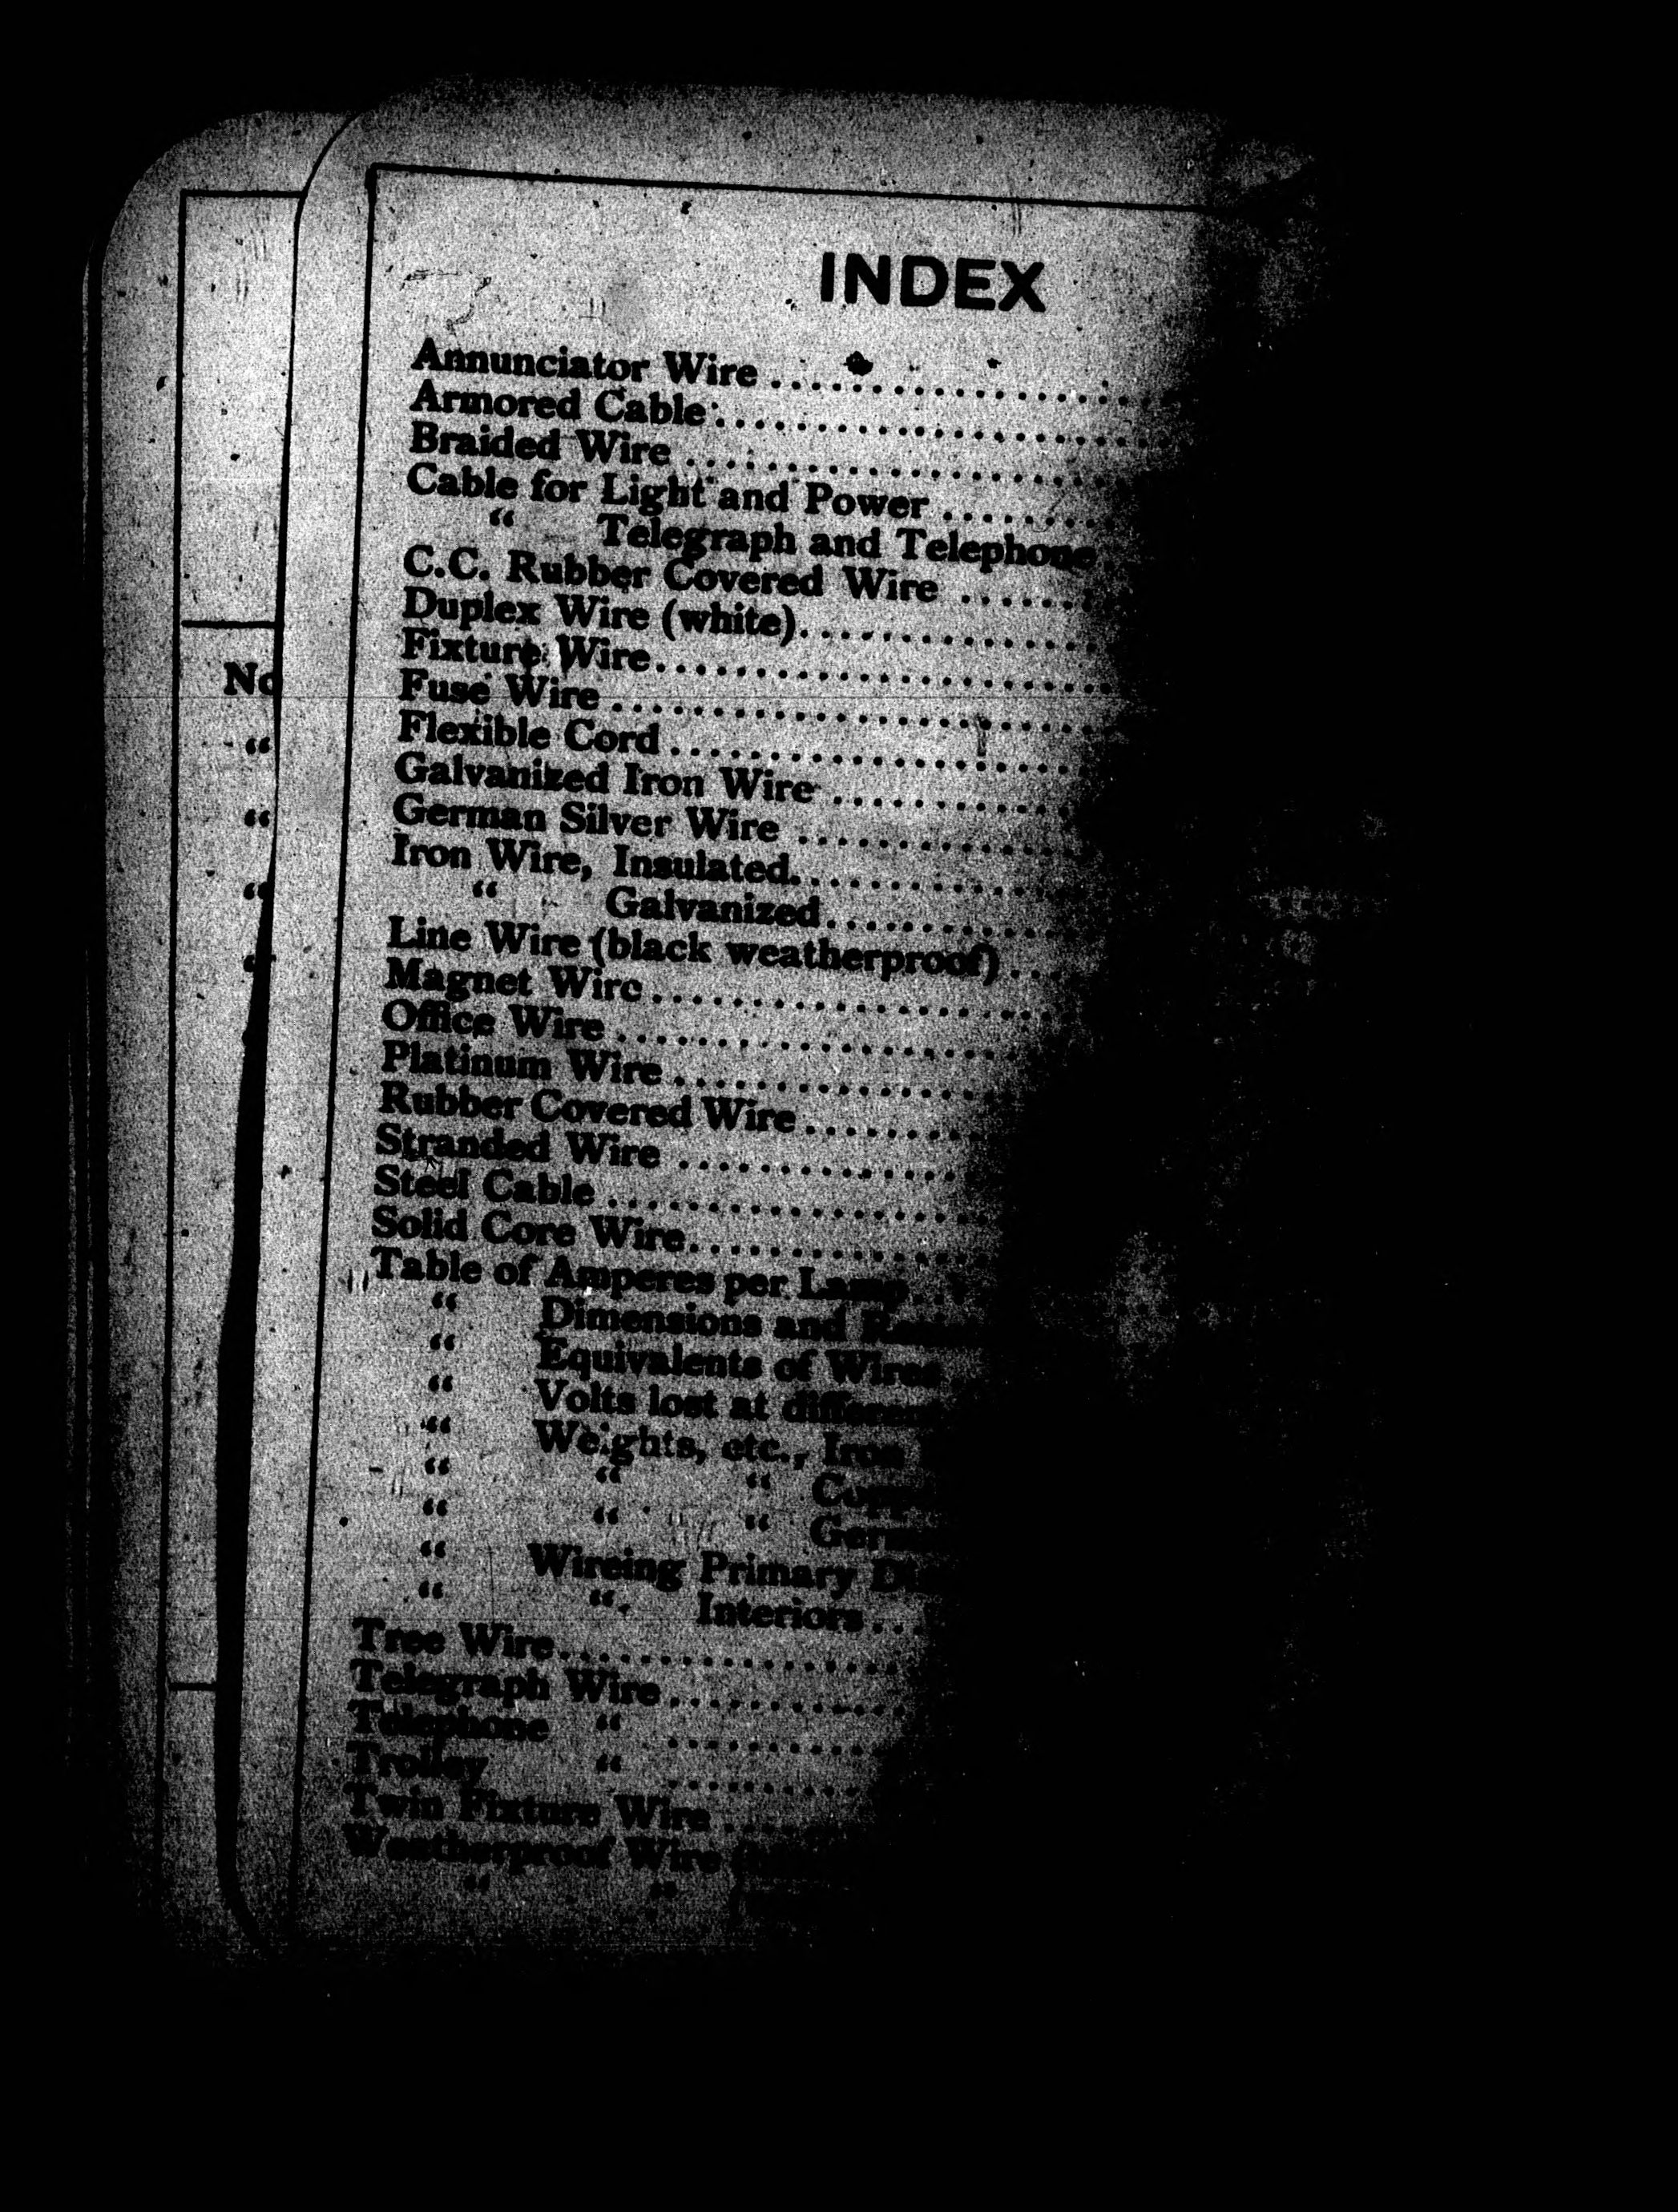 INDEX
Annunciator Wire ....................
Armored Cable ......................
Braided Wire ......................
Cable for Light and Power .........
" Telegraph and Telephone
C.C. Rubber Covered Wire .......
Duplex Wire (white)...............
Fixture Wire.......................
Fuse Wire .........................
Flexible Cord .....................
Galvanized Iron Wire ............
German Silver Wire ..............
Iron Wire, Insulated..............
" Galvanized............
Line Wire (black weatherproof) ....
Magnet Wire ....................
Office Wire ...................
Platinum Wire ................
Rubber Covered Wire .........
Stranded Wire ..............
Steel Cable ...................
Solid Core Wire...............
Table of Amperes per Lamp
" Dimensions and
" Equivalents of Wires
" Volts lost at
" Weights, etc., Iron
" " "
" " "
" Wireing Primary
" " Interiors...
Tree Wire.................
Telegraph Wire ............
Telephone " ...........
Trolley " ..........
Twin Fixture Wire ....
Weatherproof Wire
" "
No
"
"
"
"